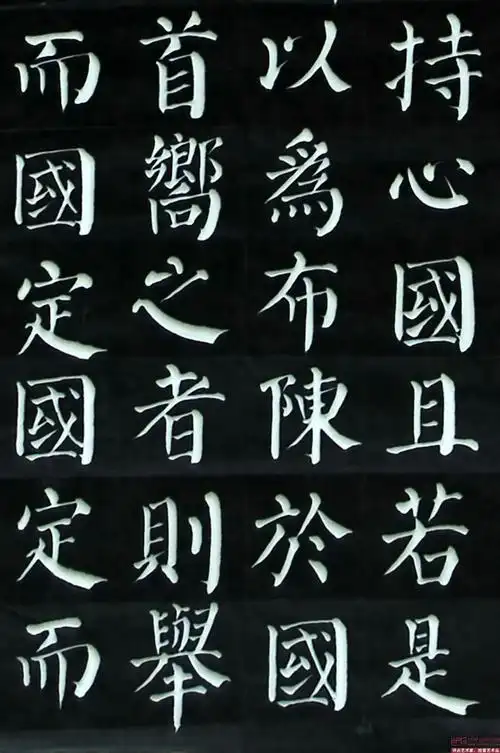 持心國且若是
以為布陳於國
首嚮之者則舉
而國定國定而